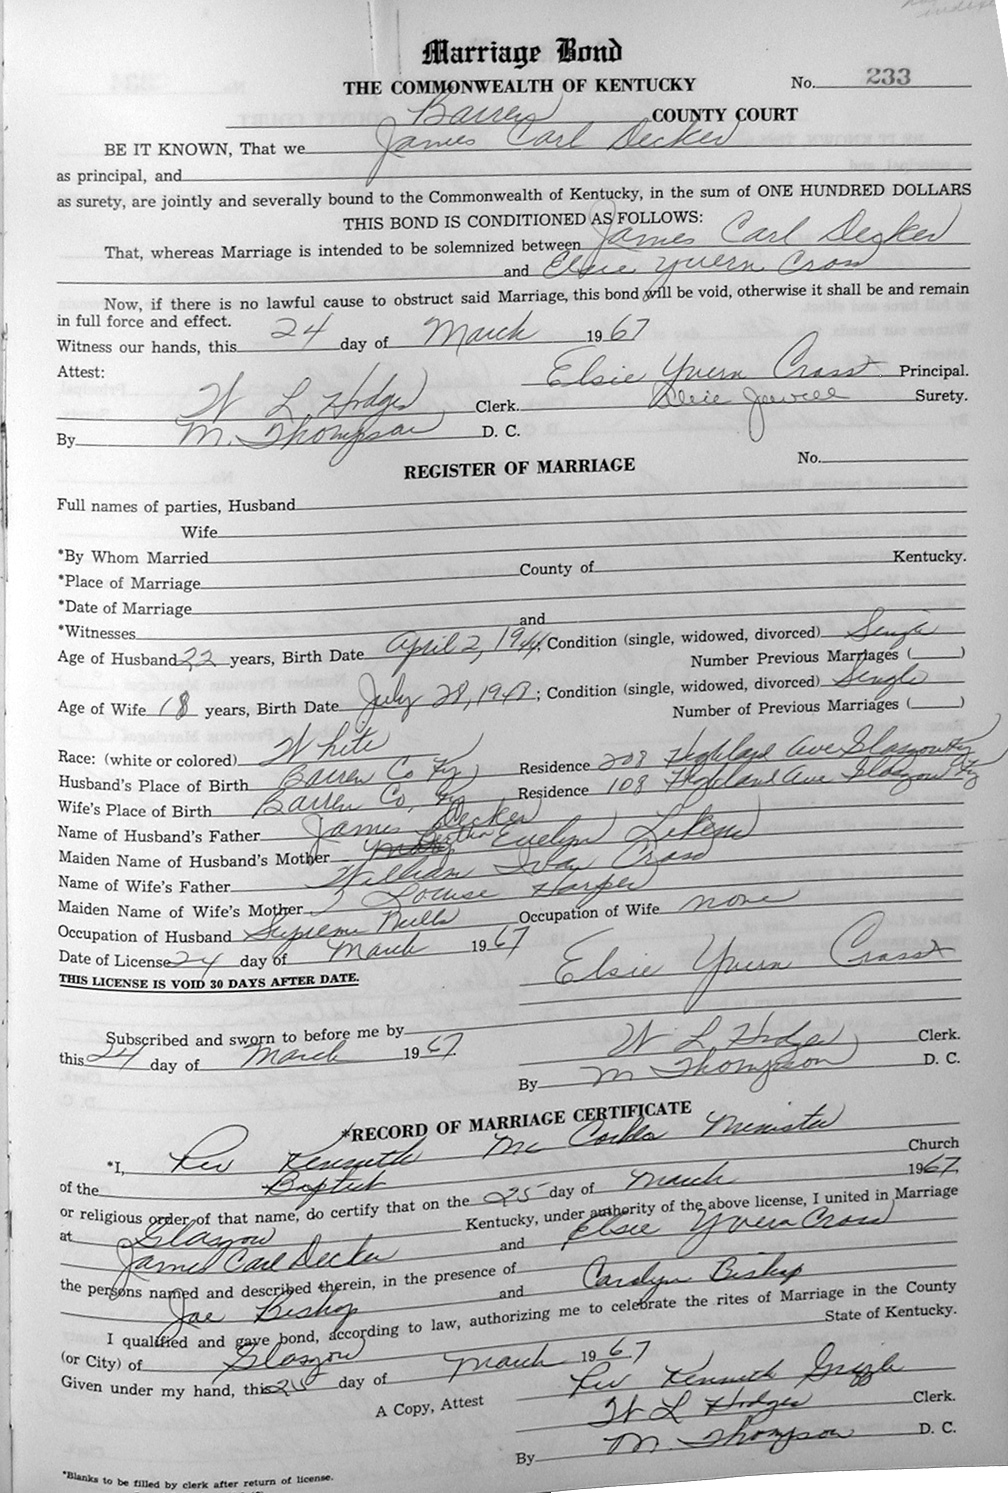 Marriage Bond
THE COMMONWEALTH OF KENTUCKY No. 233
Barren COUNTY COURT
BE IT KNOWN, That we James Carl Decker
as principal, and
as surety, are jointly and severally bound to the Commonwealth of Kentucky, in the sum of ONE HUNDRED DOLLARS
THIS BOND IS CONDITIONED AS FOLLOWS:
That, whereas Marriage is intended to be solemnized between James Carl Decker
and Elsie Yvern Cross
Now, if there is no lawful cause to obstruct said Marriage, this bond will be void, otherwise it shall be and remain
in full force and effect.
Witness our hands, this 24 day of March 1967
Attest: Elsie Yvern Cross Principal.
W L Hodges Clerk. Surety.
By M. Thompson D. C.
REGISTER OF MARRIAGE No.
Full names of parties, Husband
Wife
*By Whom Married
*Place of Marriage County of Kentucky.
*Date of Marriage
*Witnesses and
Age of Husband 22 years, Birth Date April 2, 1944; Condition (single, widowed, divorced) Single
Number Previous Marriages ( )
Age of Wife 18 years, Birth Date July 28, 194; Condition (single, widowed, divorced) Single
Number of Previous Marriages ( )
Race: (white or colored) White
Husband's Place of Birth Barren Co Ky Residence 208 Highland Ave Glasgow Ky
Wife's Place of Birth Barren Co, Ky Residence 108 Highland Ave Glasgow Ky
Name of Husband's Father James Decker
Maiden Name of Husband's Mother Bertha Evelyn Likens
Name of Wife's Father William Ivan Cross
Maiden Name of Wife's Mother Louise Harper
Occupation of Husband Supreme Mills Occupation of Wife none
Date of License 24 day of March 1967
THIS LICENSE IS VOID 30 DAYS AFTER DATE.
Elsie Yvern Cross
Subscribed and sworn to before me by
this 24 day of March 1967 W L Hodges Clerk.
By M Thompson D. C.
*RECORD OF MARRIAGE CERTIFICATE
*I, Rev Kenneth Mc Minister
of the Baptist Church
or religious order of that name, do certify that on the 25 day of March 1967
at Glasgow Kentucky, under authority of the above license, I united in Marriage
James Carl Decker and Elsie Yvern Cross
the persons named and described therein, in the presence of
Joe Bishop and Carolyn Bishop
I qualified and gave bond, according to law, authorizing me to celebrate the rites of Marriage in the County
(or City) of Glasgow State of Kentucky.
Given under my hand, this 25 day of March 1967
Rev Kenneth
A Copy, Attest W L Hodges Clerk.
By M. Thompson D. C.
*Blanks to be filled by clerk after return of license.